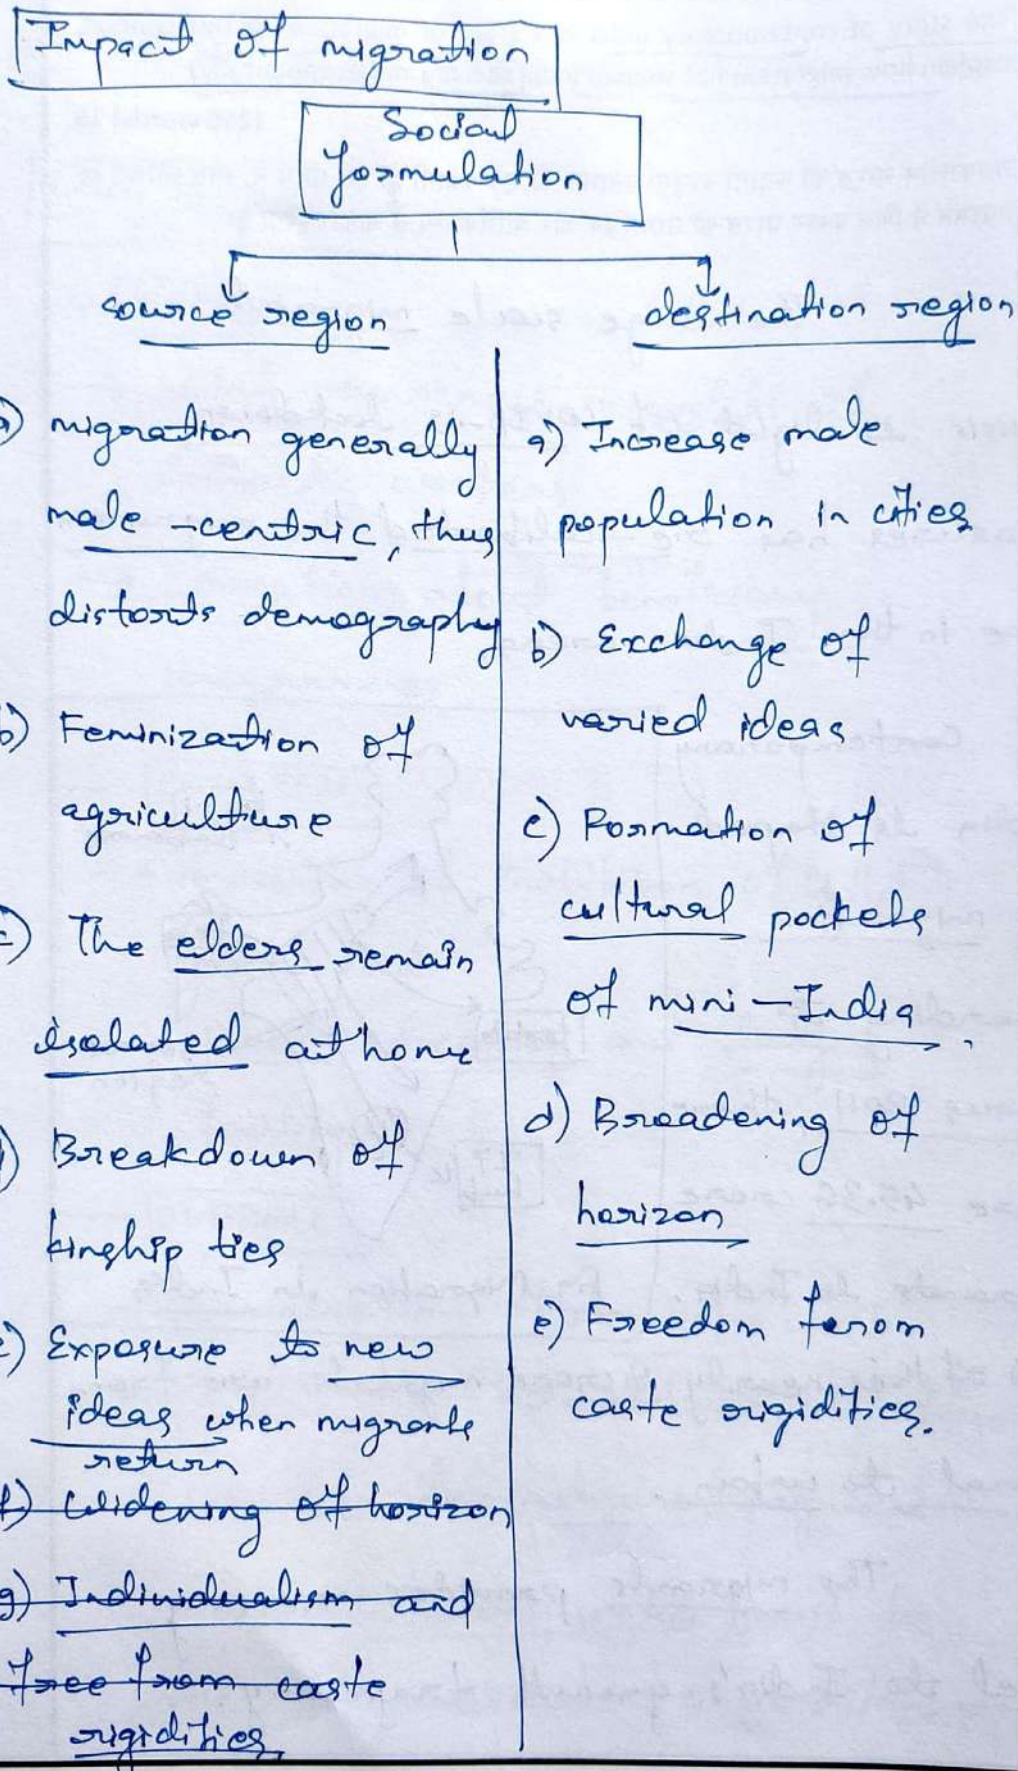 Impact of migration
Social
formulation
source region
destination region
a) migration generally
male-centric, thus
distorts demography
b) Feminization of
agriculture
c) The elders remain
isolated at home
d) Breakdown of
kinship ties
e) Exposure to new
ideas when migrants
return
f) Widening of horizon
g) Individualism and
free from caste
rigidities
a) Increase male
population in cities
b) Exchange of
varied ideas
c) Formation of
cultural pockets
of mini-India.
d) Broadening of
horizon
e) Freedom from
caste rigidities.